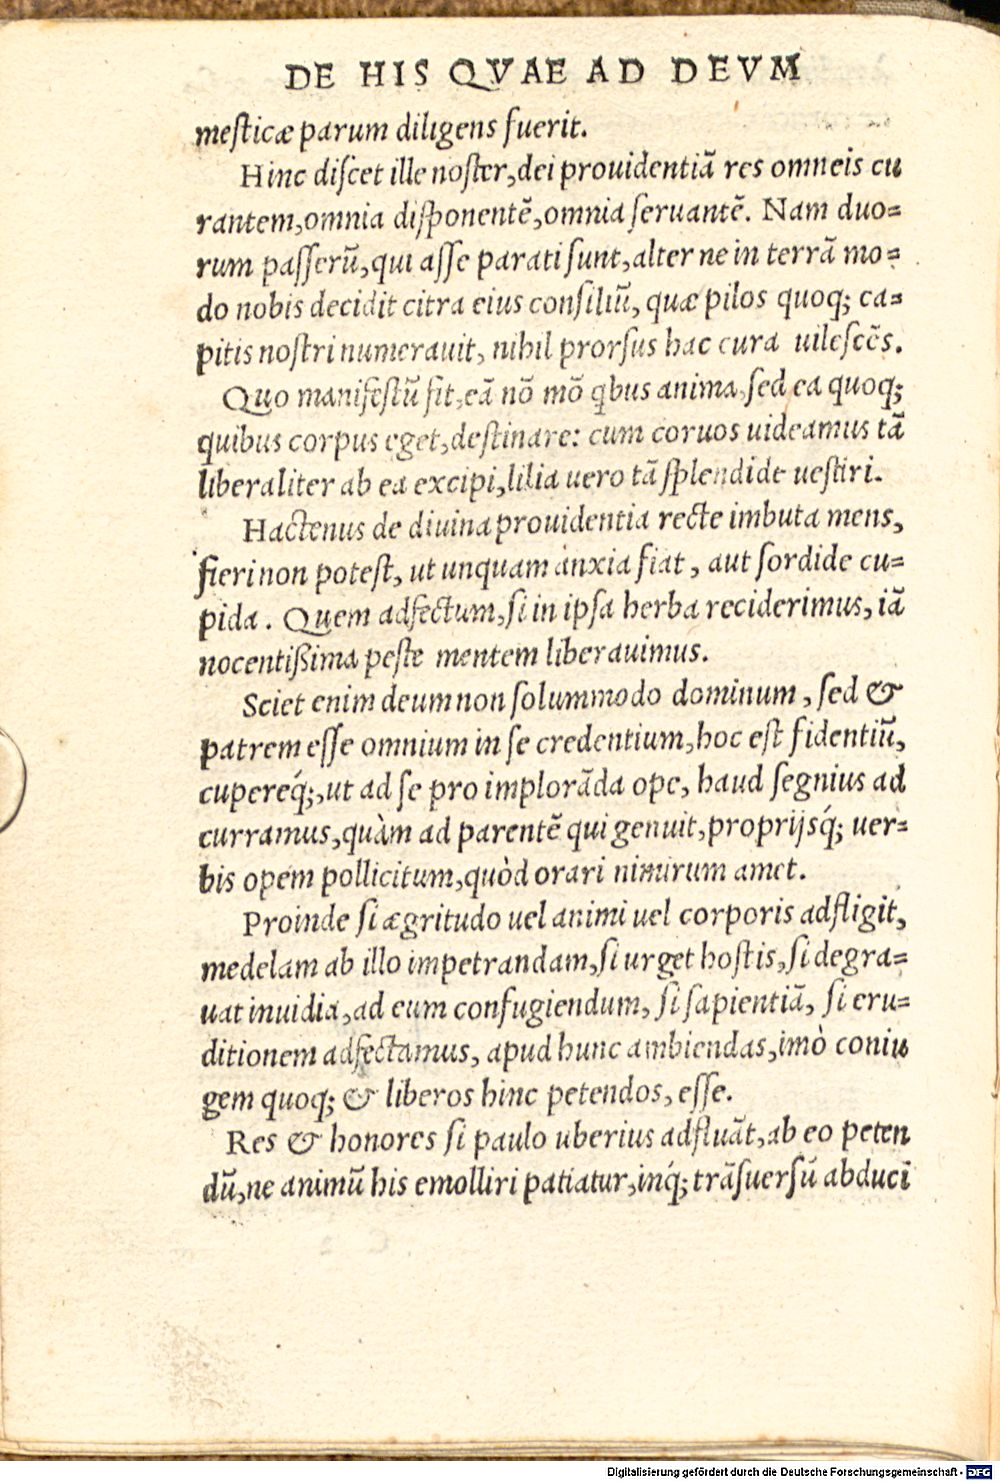 DE HIS QVAE AD DEVM
mesticæ parum diligens fuerit.
Hinc discet ille noster, dei prouidentiā res omneis cu
rantem, omnia disponentē, omnia seruantē. Nam duo=
rum passerū, qui asse parati sunt, alter ne in terrā mo=
do nobis decidit citra eius consiliū, quæ pilos quoq; ca=
pitis nostri numerauit, nihil prorsus hac cura uilescēs.
Quo manifestū fit, eā nō mō qbus anima, sed ea quoq;
quibus corpus eget, destinare: cum coruos uideamus tā
liberaliter ab ea excipi, lilia uero tā splendide uestiri.
Hactenus de diuina prouidentia recte imbuta mens,
fieri non potest, ut unquam anxia fiat, aut sordide cu=
pida. Quem adfectum, si in ipsa herba reciderimus, iā
nocentißima peste mentem liberauimus.
Sciet enim deum non solummodo dominum, sed &
patrem esse omnium in se credentium, hoc est fidentiū,
cupereq́;, ut ad se pro implorāda ope, haud segnius ad
curramus, quàm ad parentē qui genuit, proprijsq́; uer=
bis opem pollicitum, quòd orari nimirum amet.
Proinde si ægritudo uel animi uel corporis adfligit,
medelam ab illo impetrandam, si urget hostis, si degra=
uat inuidia, ad eum confugiendum, si sapientiā, si eru=
ditionem adfectamus, apud hunc ambiendas, imò coniu
gem quoq; & liberos hinc petendos, esse.
Res & honores si paulo uberius adfluāt, ab eo peten
dū, ne animū his emolliri patiatur, inq́; trāsuersū abduci
Digitalisierung gefördert durch die Deutsche Forschungsgemeinschaft - DFG